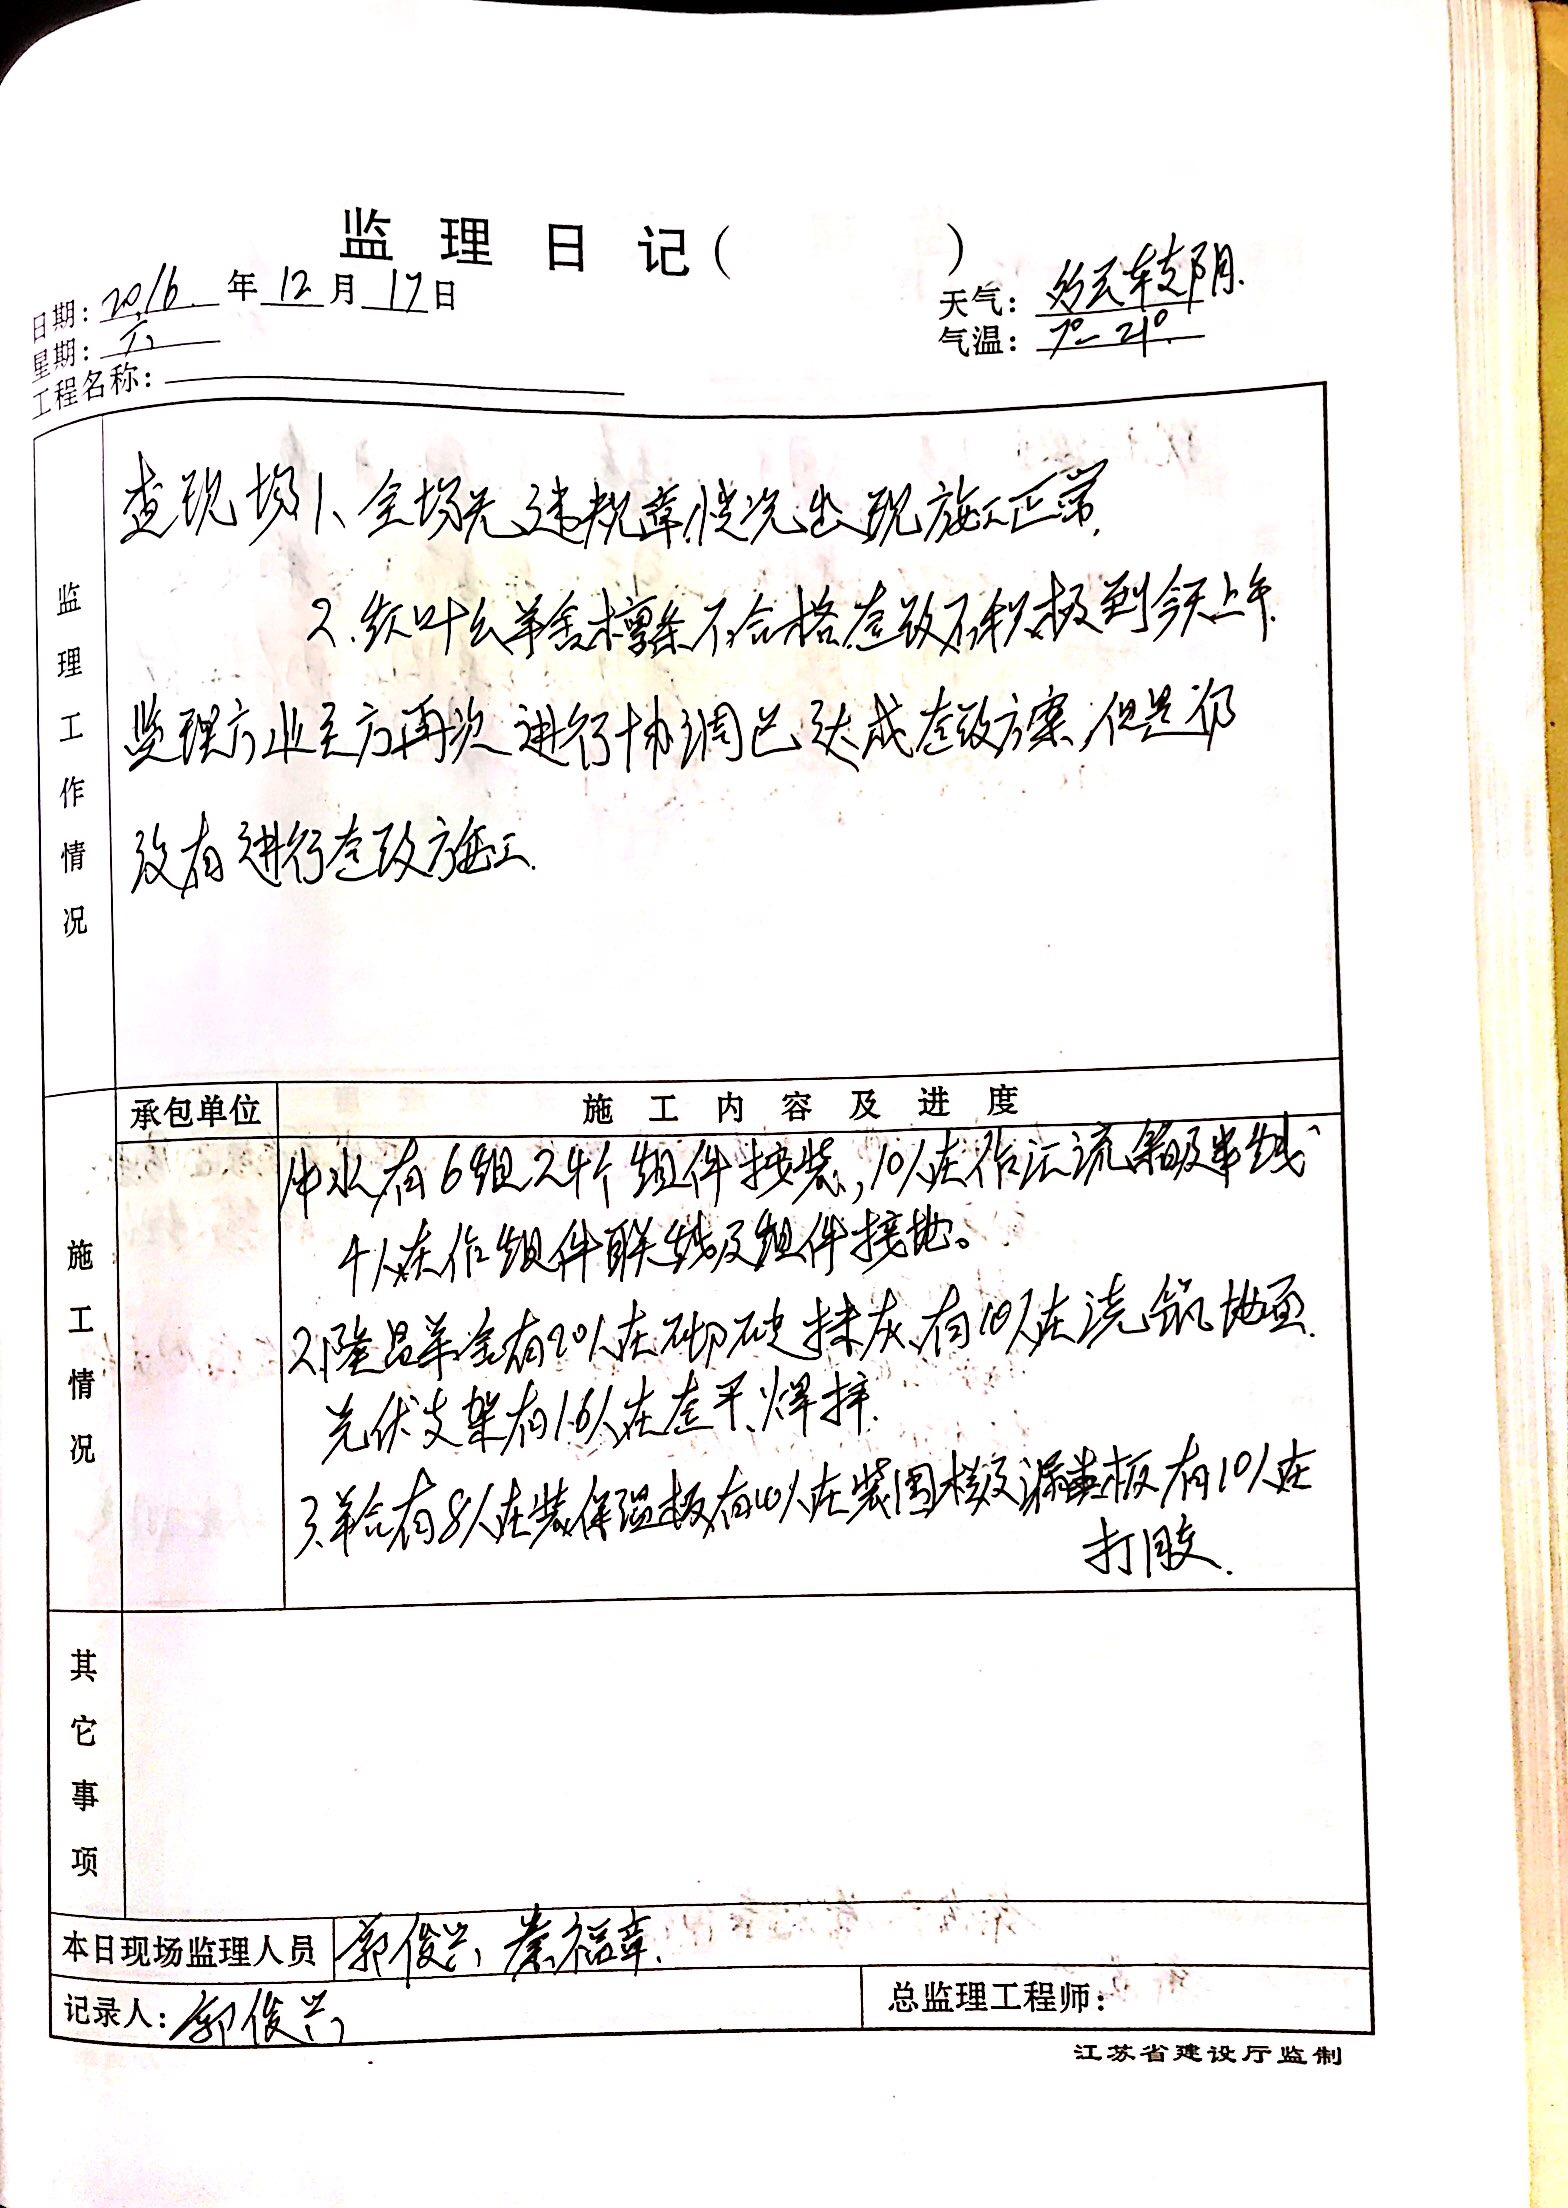 监理日记( )
日期: 2016 年 12 月 17 日
天气: 多云转阴.
星期: 六
气温: 7°-21°
工程名称:
监理工作情况
查现场1、全场无违规章情况出现施工正常.
2. 羊舍檩条不合格整改不积极到今天上午.
监理方业主方再次进行协调已达成整改方案,但是仍
没有进行整改施工.
施工情况
承包单位
施工内容及进度
中水,有6组24个组件接装,10人在作汇流箱及串线
4人在作组件联线及组件接地。
2.隆昌羊舍有20人在砌砖抹灰,有10人在浇筑地面.
光伏支架有16人在查平、焊接.
3.羊舍有8人在装保温板,有10人在装围栏及漏粪板有10人在
打胶.
其它事项
本日现场监理人员 郭俊兴, 秦福章.
记录人: 郭俊兴
总监理工程师:
江苏省建设厅监制